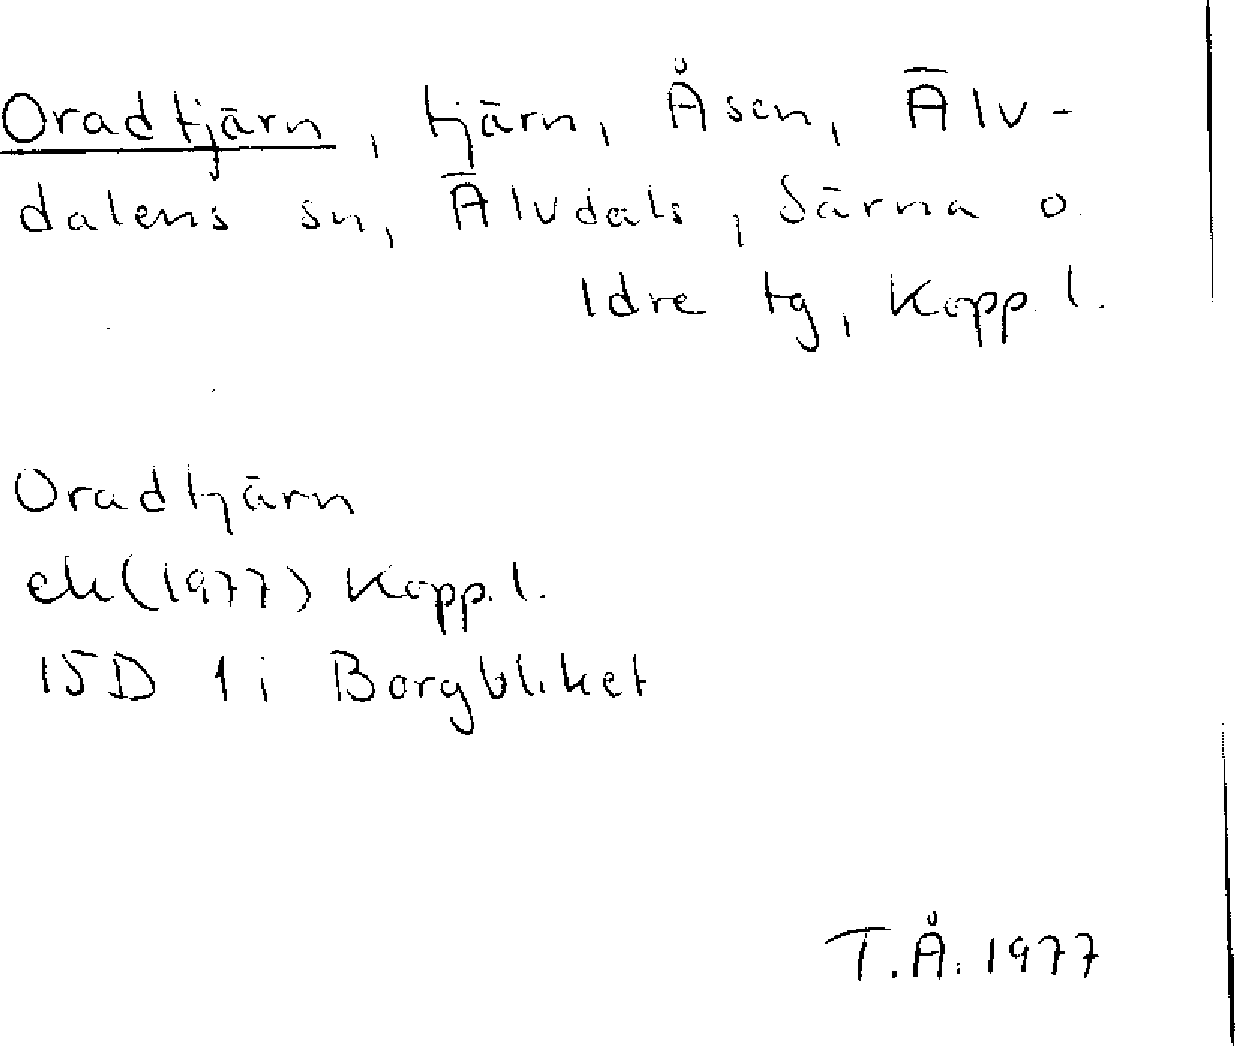 Oradtjärn, tjärn, Åsen, Älv-
dalens sn, Älvdals, Särna o.
Idre tg, Kopp. l.
Oradtjärn
ek (1977) Kopp. l.
15D 1i Borgbliket
T.Å. 1977